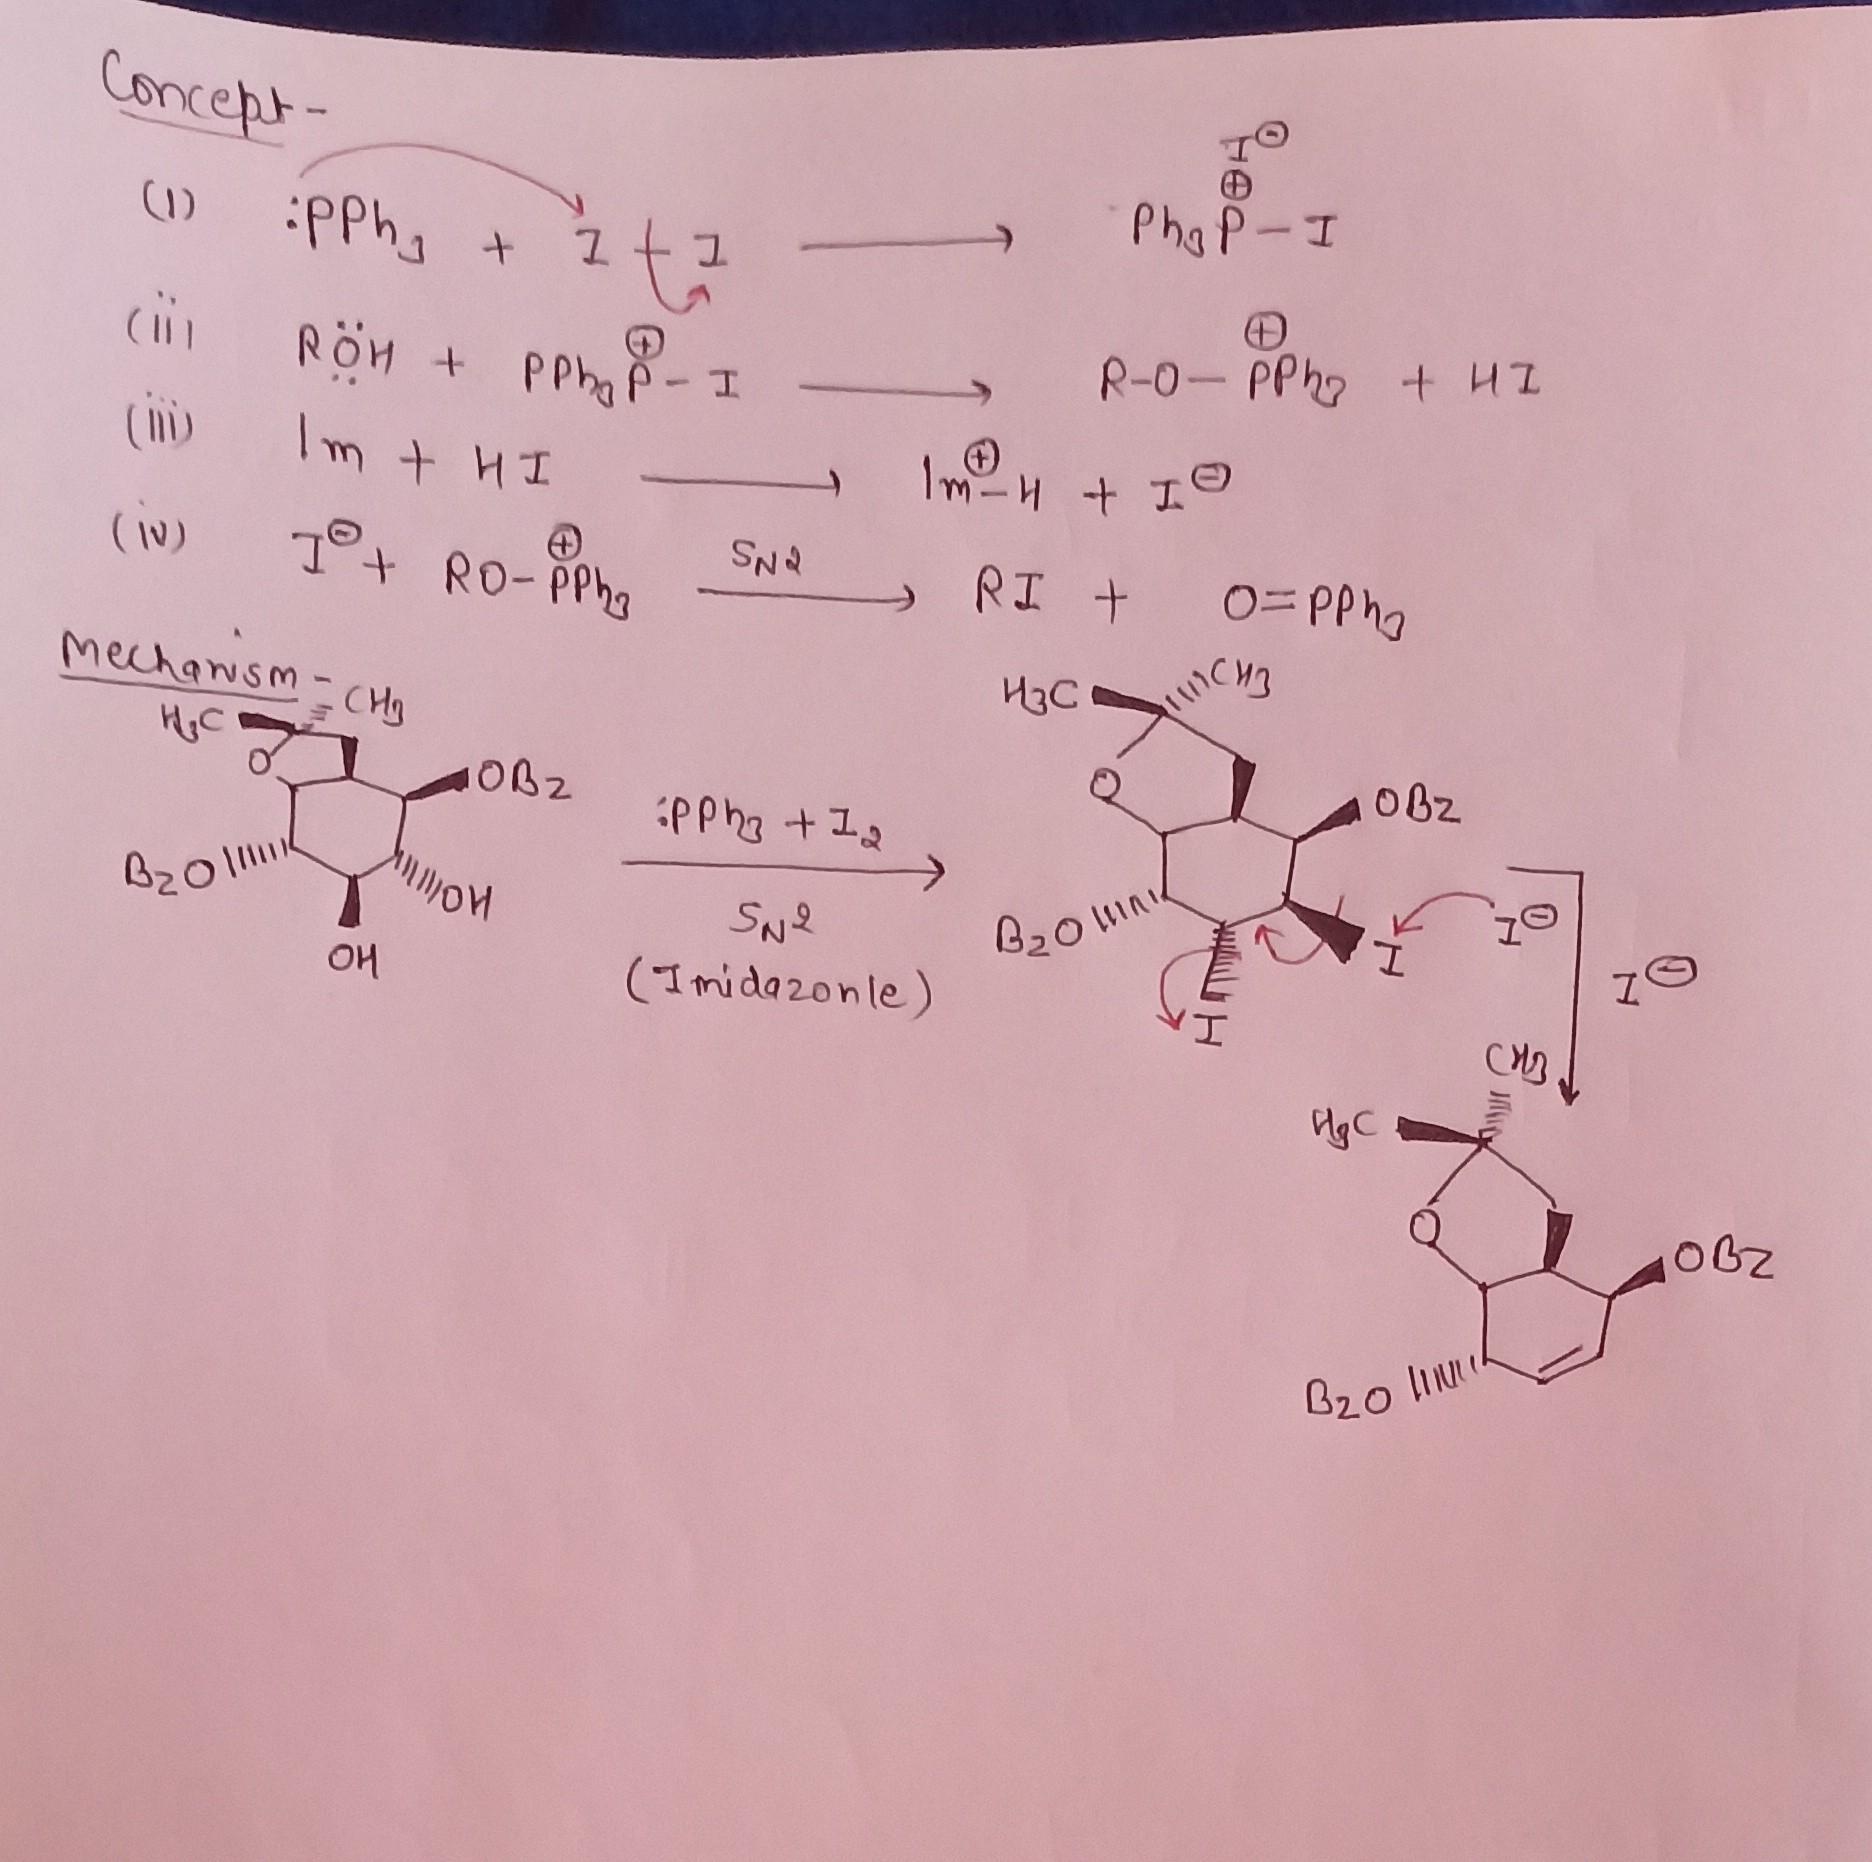 Concept-
(i) :PPh3 + I-I ⟶ Ph3P⊕-I I⊖
(ii) RÖH + PPh3P⊕-I ⟶ R-O-P⊕Ph3 + HI
(iii) Im + HI ⟶ Im⊕-H + I⊖
(iv) I⊖ + RO-P⊕Ph3 SN2 ⟶ RI + O=PPh3
Mechanism-
H3C CH3
O
OBz
BzO
OH
OH
:PPh3 + I2
SN2
(Imidazonle)
H3C CH3
O
OBz
BzO
I
I
I⊖
I⊖
CH3
H3C
O
OBz
BzO